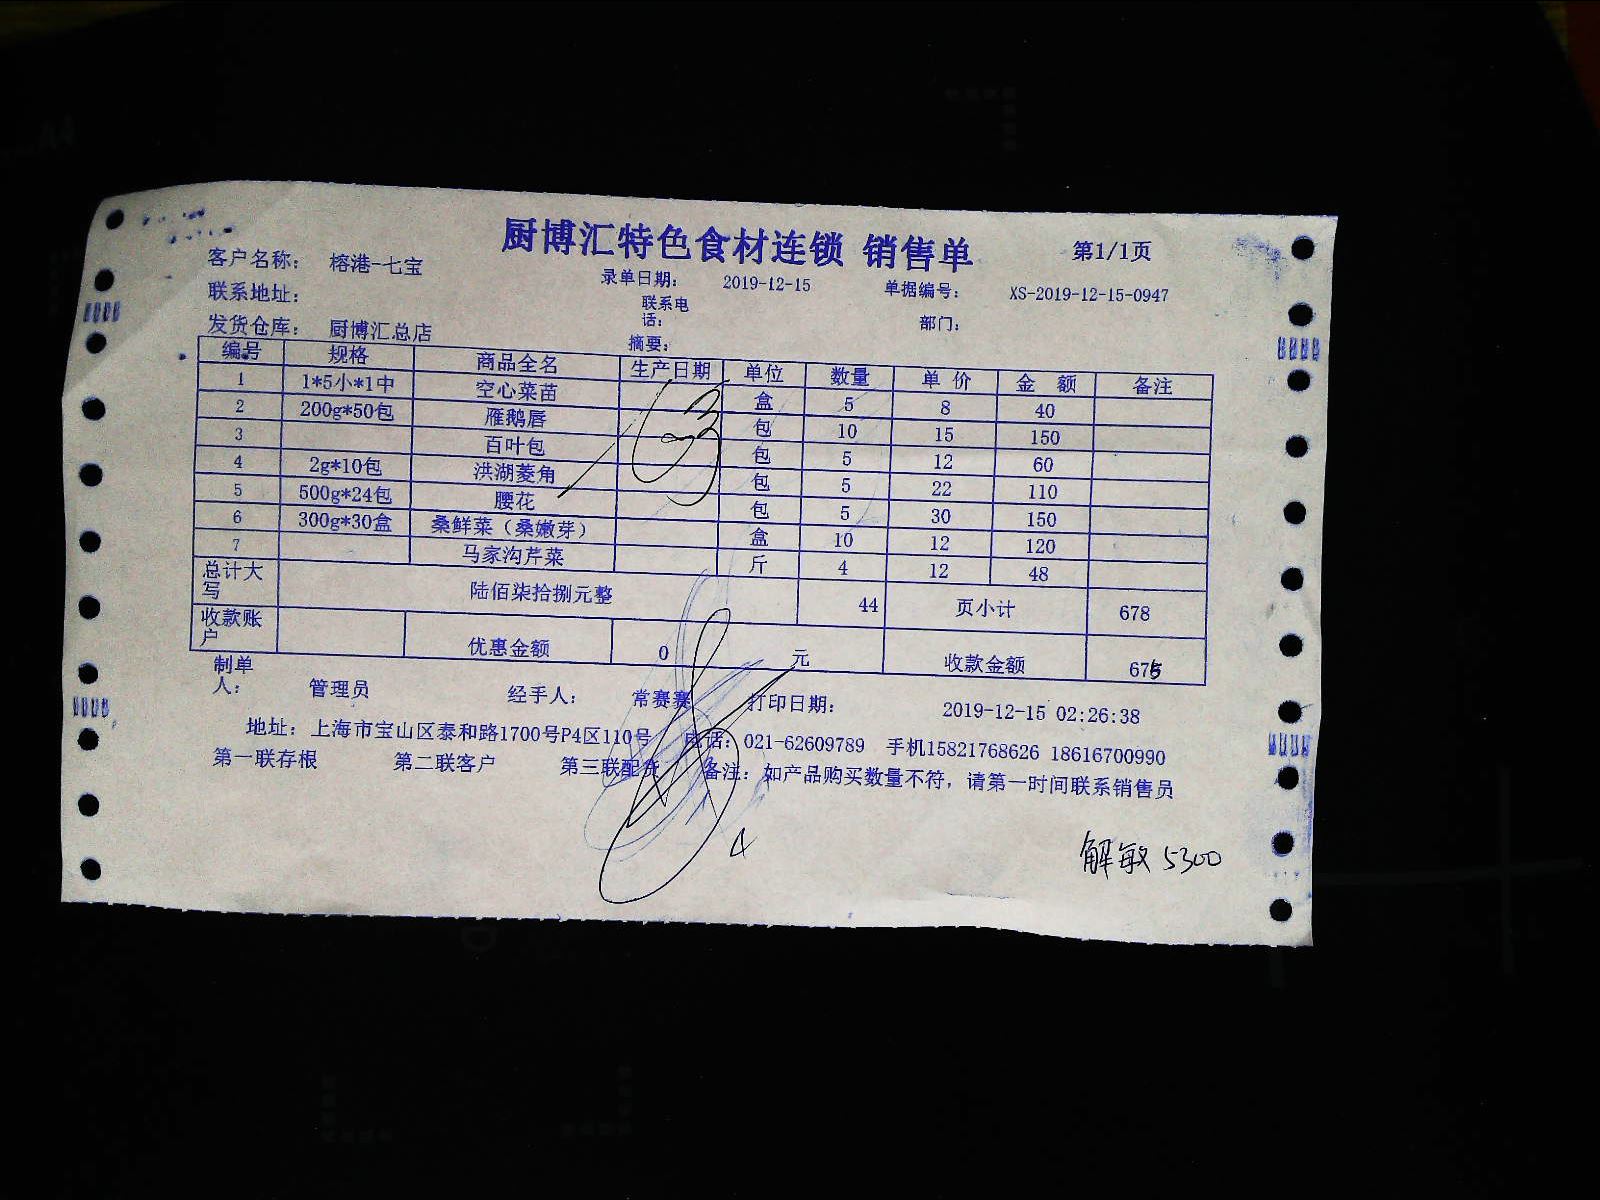 厨博汇特色食材连锁 销售单 第1/1页
客户名称： 榕港-七宝 录单日期： 2019-12-15 单据编号： XS-2019-12-15-0947
联系地址： 联系电话： 部门：
发货仓库： 厨博汇总店 摘要：
编号 规格 商品全名 生产日期 单位 数量 单 价 金 额 备注
1 1*5小*1中 空心菜苗 盒 5 8 40
2 200g*50包 雁鹅唇 包 10 15 150
3 百叶包 包 5 12 60
4 2g*10包 洪湖菱角 包 5 22 110
5 500g*24包 腰花 包 5 30 150
6 300g*30盒 桑鲜菜（桑嫩芽） 盒 10 12 120
7 马家沟芹菜 斤 4 12 48
总计大写 陆佰柒拾捌元整 44 页小计 678
收款账户 优惠金额 0 元 收款金额 675
制单人： 管理员 经手人： 常赛赛 打印日期： 2019-12-15 02:26:38
地址：上海市宝山区泰和路1700号P4区110号 电话：021-62609789 手机15821768626 18616700990
第一联存根 第二联客户 第三联配货 备注：如产品购买数量不符，请第一时间联系销售员
解敏 5300